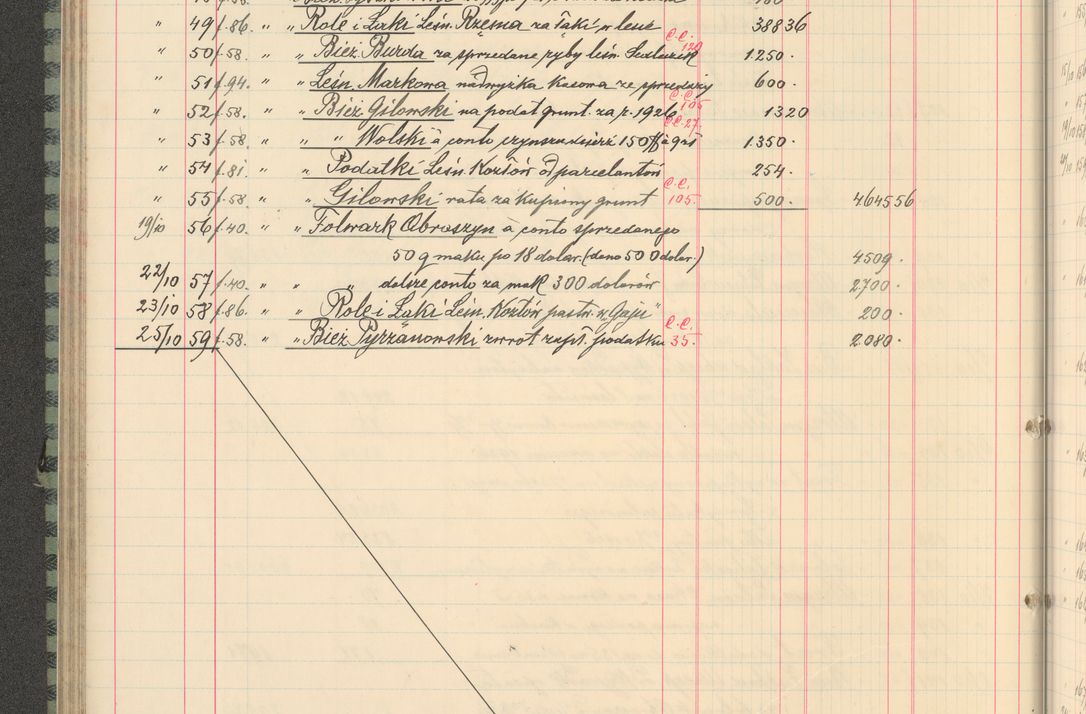 " 49 f.86. " " Role i Łąki Leśn. Rzęsna za łąki w lesie 388 36
" 50 f.58. " " Bież. Burda za sprzedane ryby leśn. C.C. 120 1.250.
" 51 f.94. " " Leśn. Markowa nadwyżka kasowa ze sprzedaży 600.
" 52 f.58. " " Bież Gilowski na podat. grunt. za r. 1926 C.C. 105 13 20
" 53 f.58. " " " Wolski à conto czynszu C.C. 27. 1.350.
" 54 f.81. " " Podatki Leśn. Kozłów od parcelantów 254.
" 55 f.58. " " Gilowski rata za kupiony grunt C.C. 105. 500. 4645 56
19/10 56 f.40. " " Folwark Obroszyn à conto sprzedanego
50 q maku po 18 dolar. (dano 500 dolar.) 4509.
22/10 57 f.40. " " " dalsze conto za mak 300 dolarów 2.700.
23/10 58 f.86. " " Role i Łąki Leśn. Kozłów pastw. "w Gaju" 200.
25/10 59 f.58. " " Bież. Pyrzanowski zwrot zapł. podatku C.C. 35. 2.080.